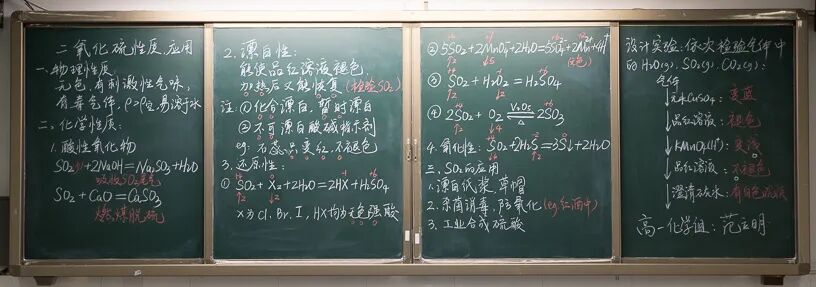 二氧化硫性质、应用
一、物理性质:
无色,有刺激性气味,
有毒气体,ρ>ρ空,易溶于水
二、化学性质:
1. 酸性氧化物
SO₂+2NaOH=Na₂SO₃+H₂O
吸收SO₂尾气
SO₂+CaO=CaSO₃
燃煤脱硫
2. 漂白性:
能使品红溶液褪色
加热后又能恢复(检验SO₂)
注:①化合漂白,暂时漂白
②不可漂白酸碱指示剂
eg:石蕊品变红,不褪色
3. 还原性:
①SO₂+X₂+2H₂O=2HX+H₂SO₄
X为Cl、Br、I,HX均为无色强酸
②5SO₂+2MnO₄⁻+2H₂O=5SO₄²⁻+2Mn²⁺+4H⁺
(无色)
③SO₂+H₂O₂=H₂SO₄
④2SO₂+O₂ V₂O₅ △ 2SO₃
4. 氧化性:SO₂+2H₂S=3S↓+2H₂O
三、SO₂的应用
1. 漂白纸浆、草帽
2. 杀菌消毒,防氧化(eg.红酒中)
3. 工业合成硫酸
设计实验:依次检验气体中
的H₂O(g),SO₂(g),CO₂(g):
气体
↓无水CuSO₄:变蓝
↓品红溶液:褪色
↓KMnO₄(H⁺):变浅
↓品红溶液:不褪色
↓澄清石灰水:有白色沉淀
高一化学组:范立明